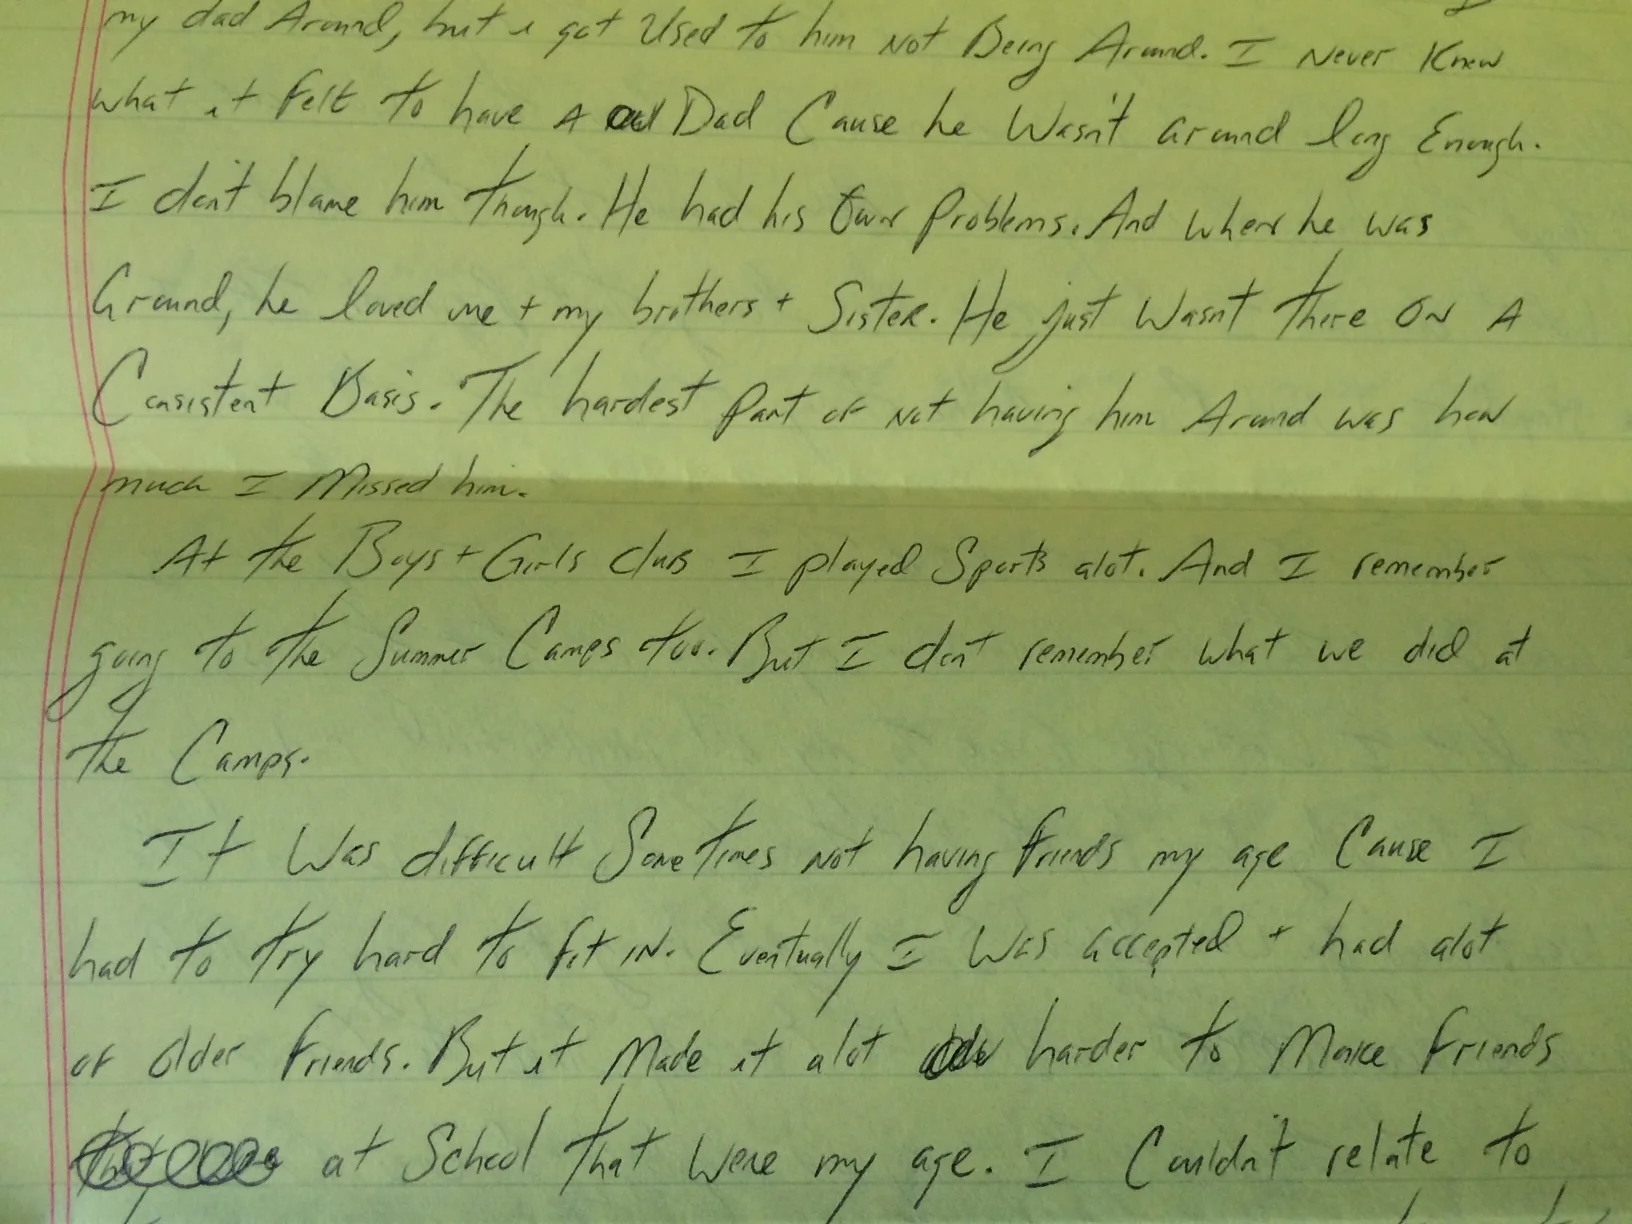 my dad Around, but i got Used to him Not Being Around. I Never Knew
what it felt to have A Dad Cause he Wasn't around long Enough.
I don't blame him though. He had his Own Problems. And when he was
Around, he loved me + my brothers + Sister. He just Wasnt there ON A
Consistent Basis. The hardest Part of Not having him Around was how
much I Missed him.
At the Boys + Girls club I played Sports alot. And I remember
going to the Summer Camps too. But I don't remember what we did at
the Camps.
It Was difficult Sometimes Not having friends my age Cause I
had to try hard to fit IN. Eventually I Was accepted + had alot
of older friends. But it Made it alot harder to Make friends
at School that Were my age. I Couldn't relate to